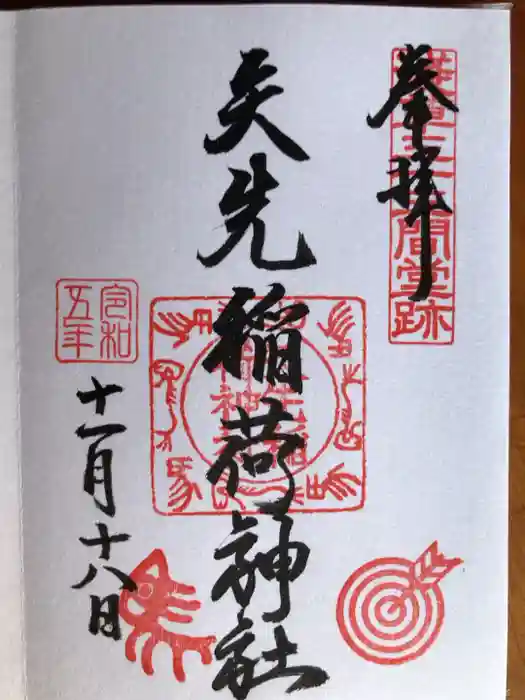 奉拝
三十三間堂跡
矢先稲荷神社
令和
五年
十一月十八日